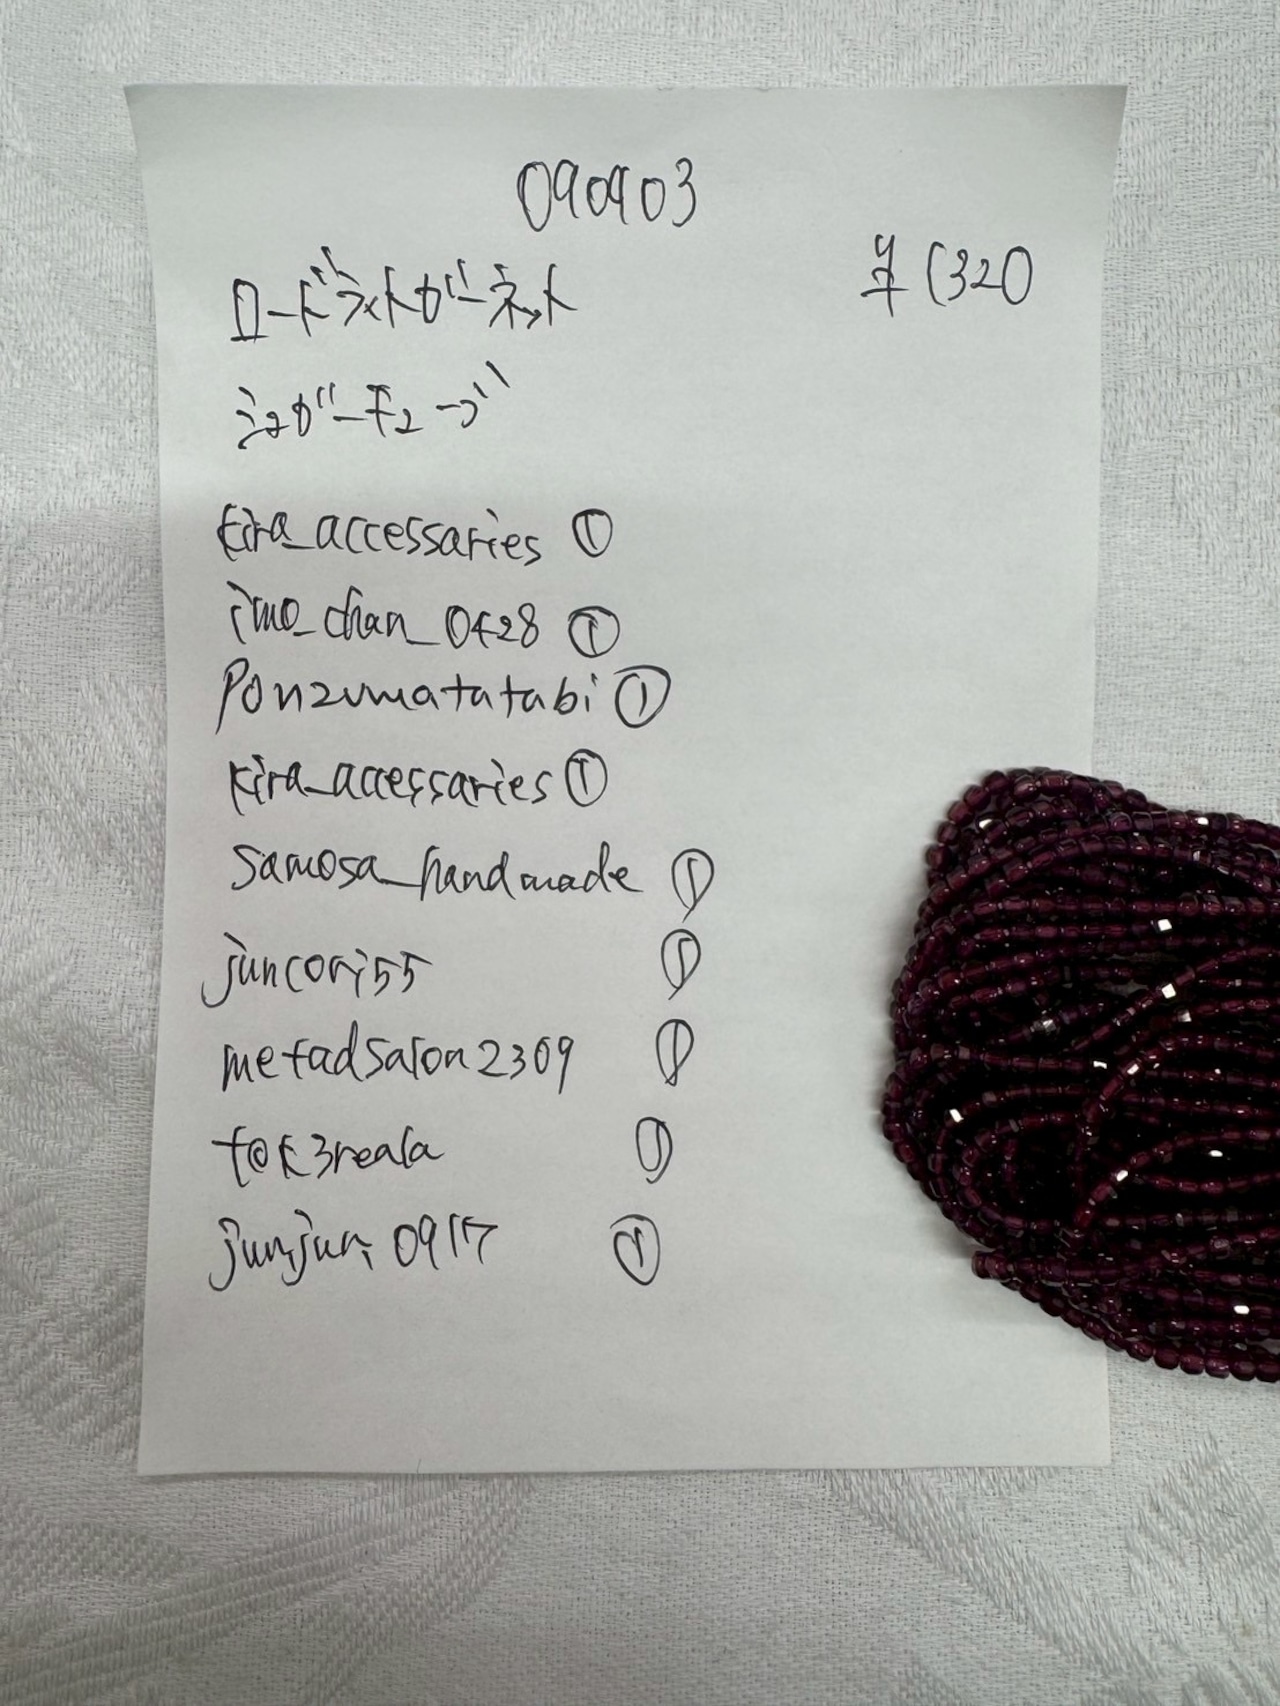 090903
ロードライトガーネット
¥1320
シュガーチューブ
kira_accessaries ①
imo_chan_0428 ①
Ponzumatatabi ①
kira_accessaries ①
Samosa_handmade ①
juncori55 ①
metadsalon2309 ①
①
junjun0917 ①